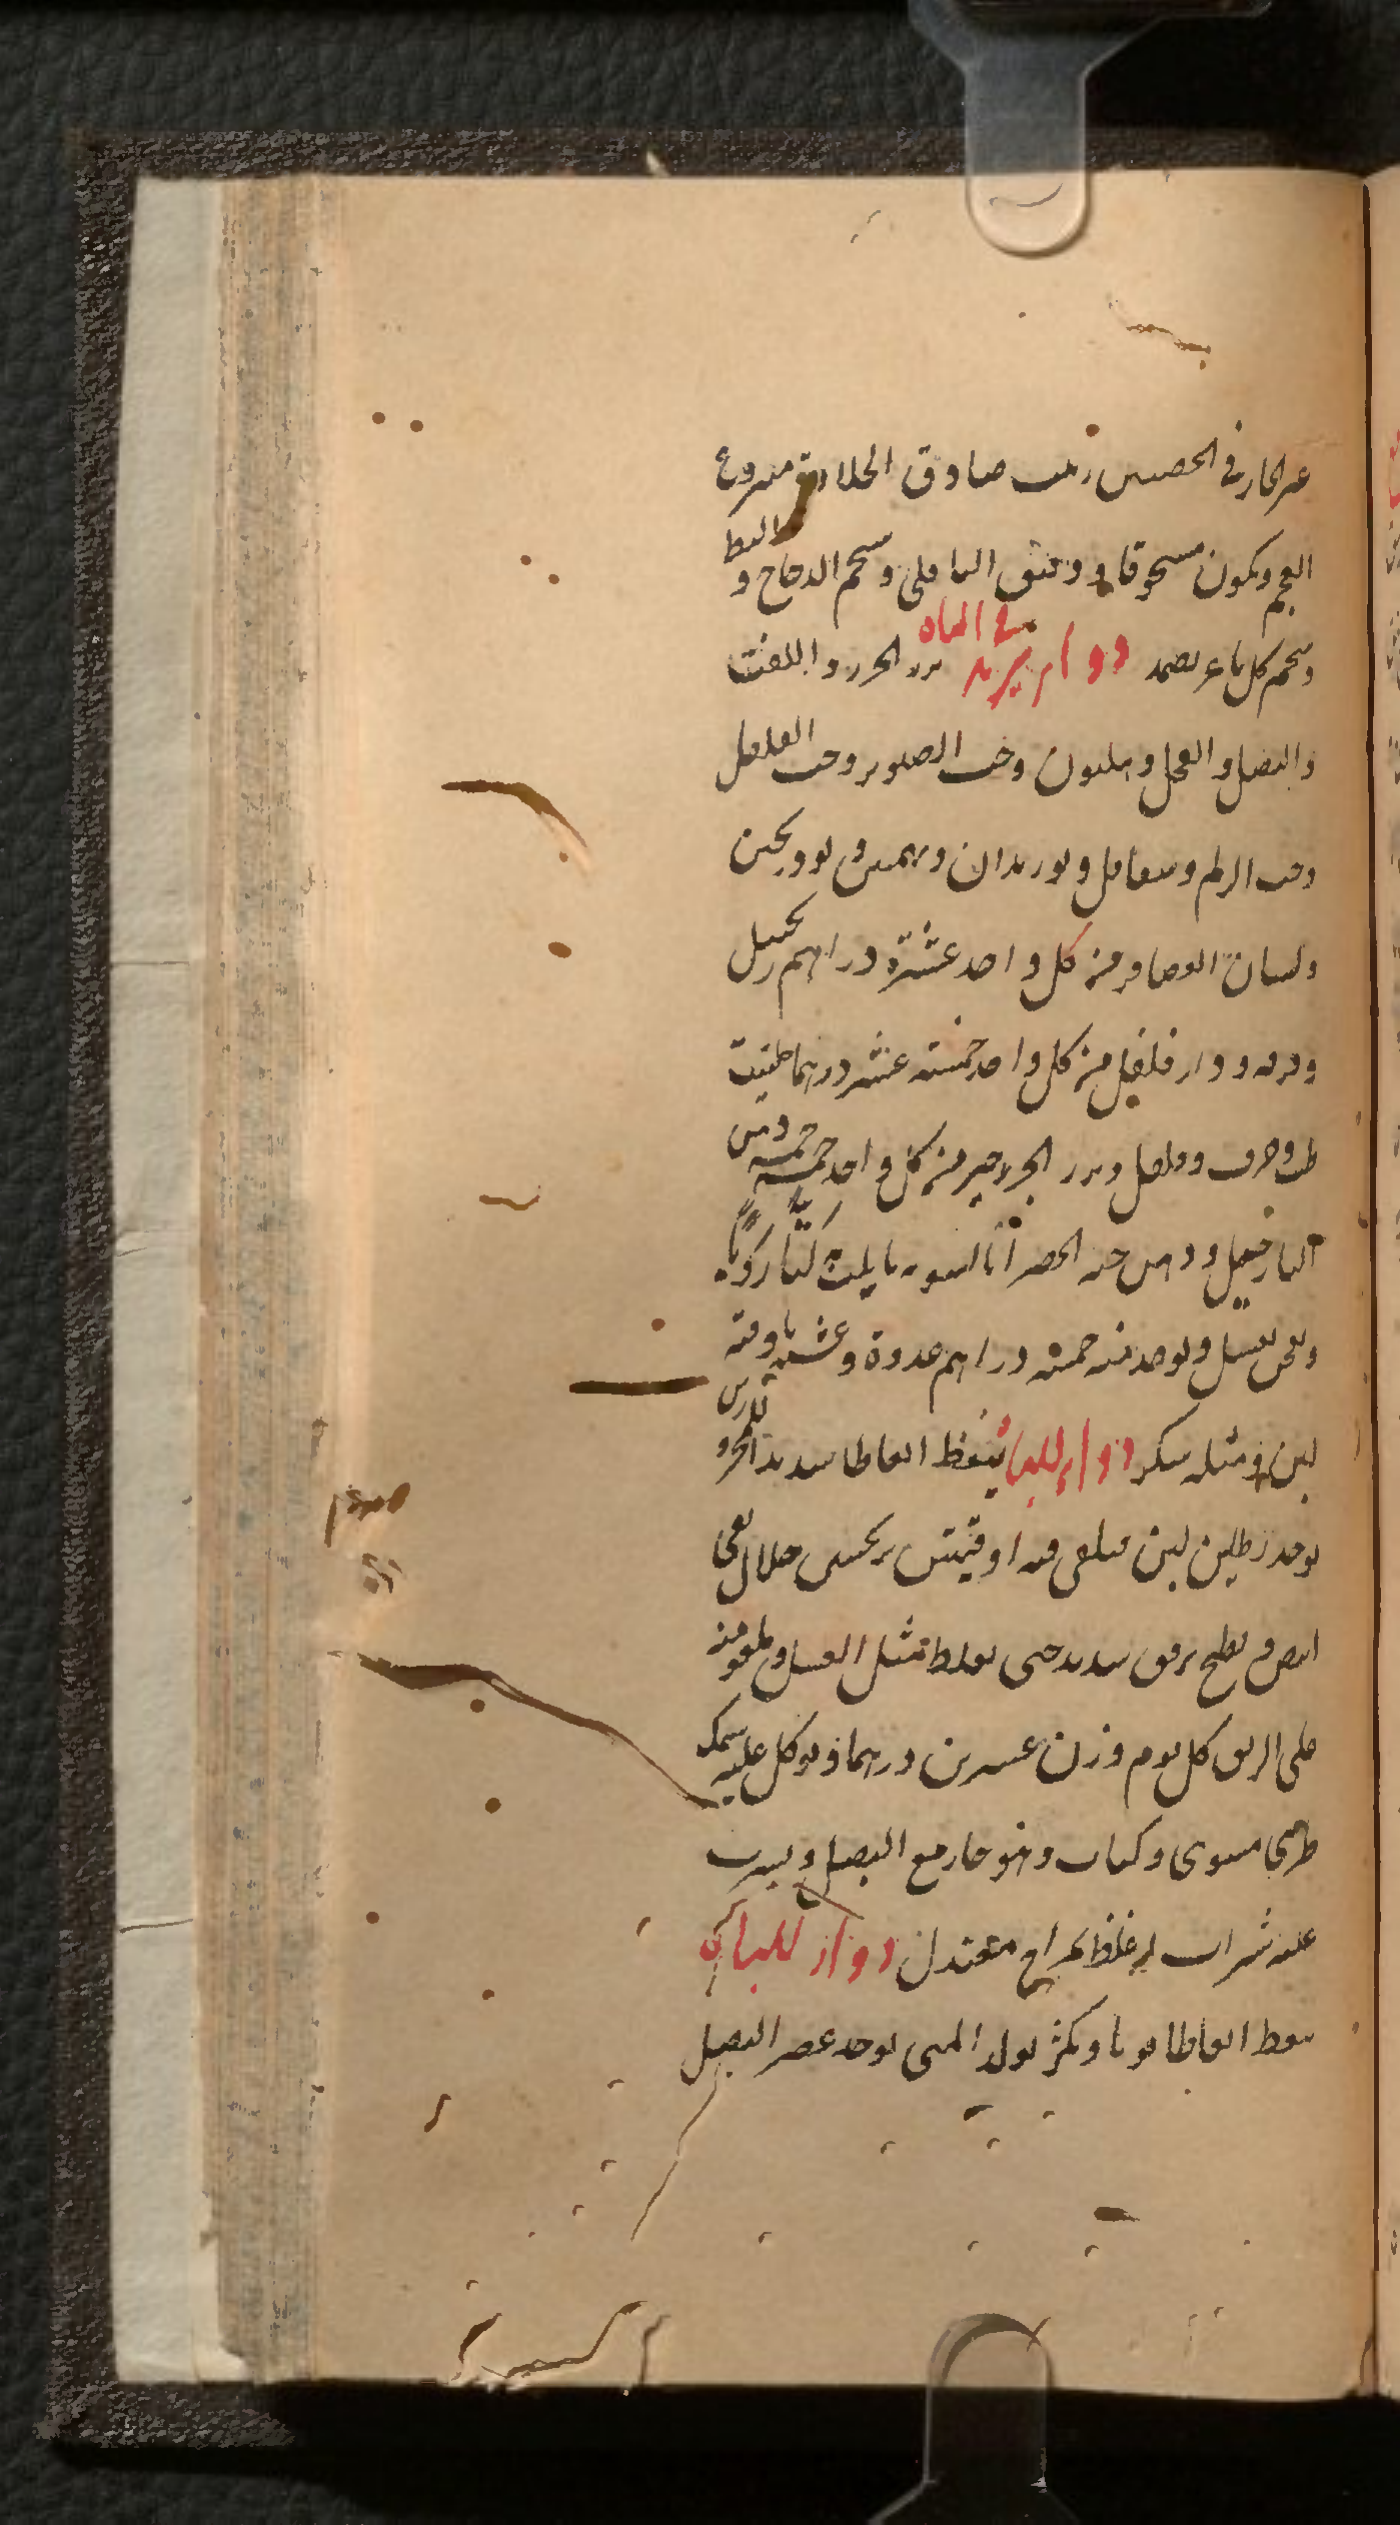 غير الحار في الخصيتين زبيب صادق الحلاوة منزوع
العجم ويكون مسحوقا ودقيق الباقلى وشحم الدجاج والبط
وشحم كلى ماعز يضمد دواء يزيد في الباه بزر الجزر واللفت
والبصل والفجل وهليون وحب الصنوبر وحب الفلفل
وحب الزلم وشقاقل وبوزيدان وبهمن وتودريجين
ولسان العصافير من كل واحد عشرة دراهم زنجبيل
وقرفه ودار فلفل من كل واحد خمسة عشر درهما حلتيت
طيب وحرف وفلفل وبزر الجرجير من كل واحد خمسة خمسة دهن
النارجيل ودهن حبة الخضرا بالسويه ما يلت لتا رويا
ويعجن بعسل ويوخذ منه خمسة دراهم غدوة وعشيا باوقية
لبن ومثله سكر دواء للباه ينعظ انعاظا شديدا للمحرورين
يوخذ رطلين لبن يلقى فيه اوقيتين ترنجبين جلال نقي
ابيض ويطبخ برفق شديد حتى يغلظ مثل العسل ويلعق منه
على الريق كل يوم وزن عشرين درهما ويوكل عليه سمك
طري مشوي وكباب وهو حار مع البصل ويشرب
عليه شراب له غلظ بمزاج معتدل دواء للباه
ينعظ انعاظا قويا ويكثر تولد المنى يوخذ عصير البصل